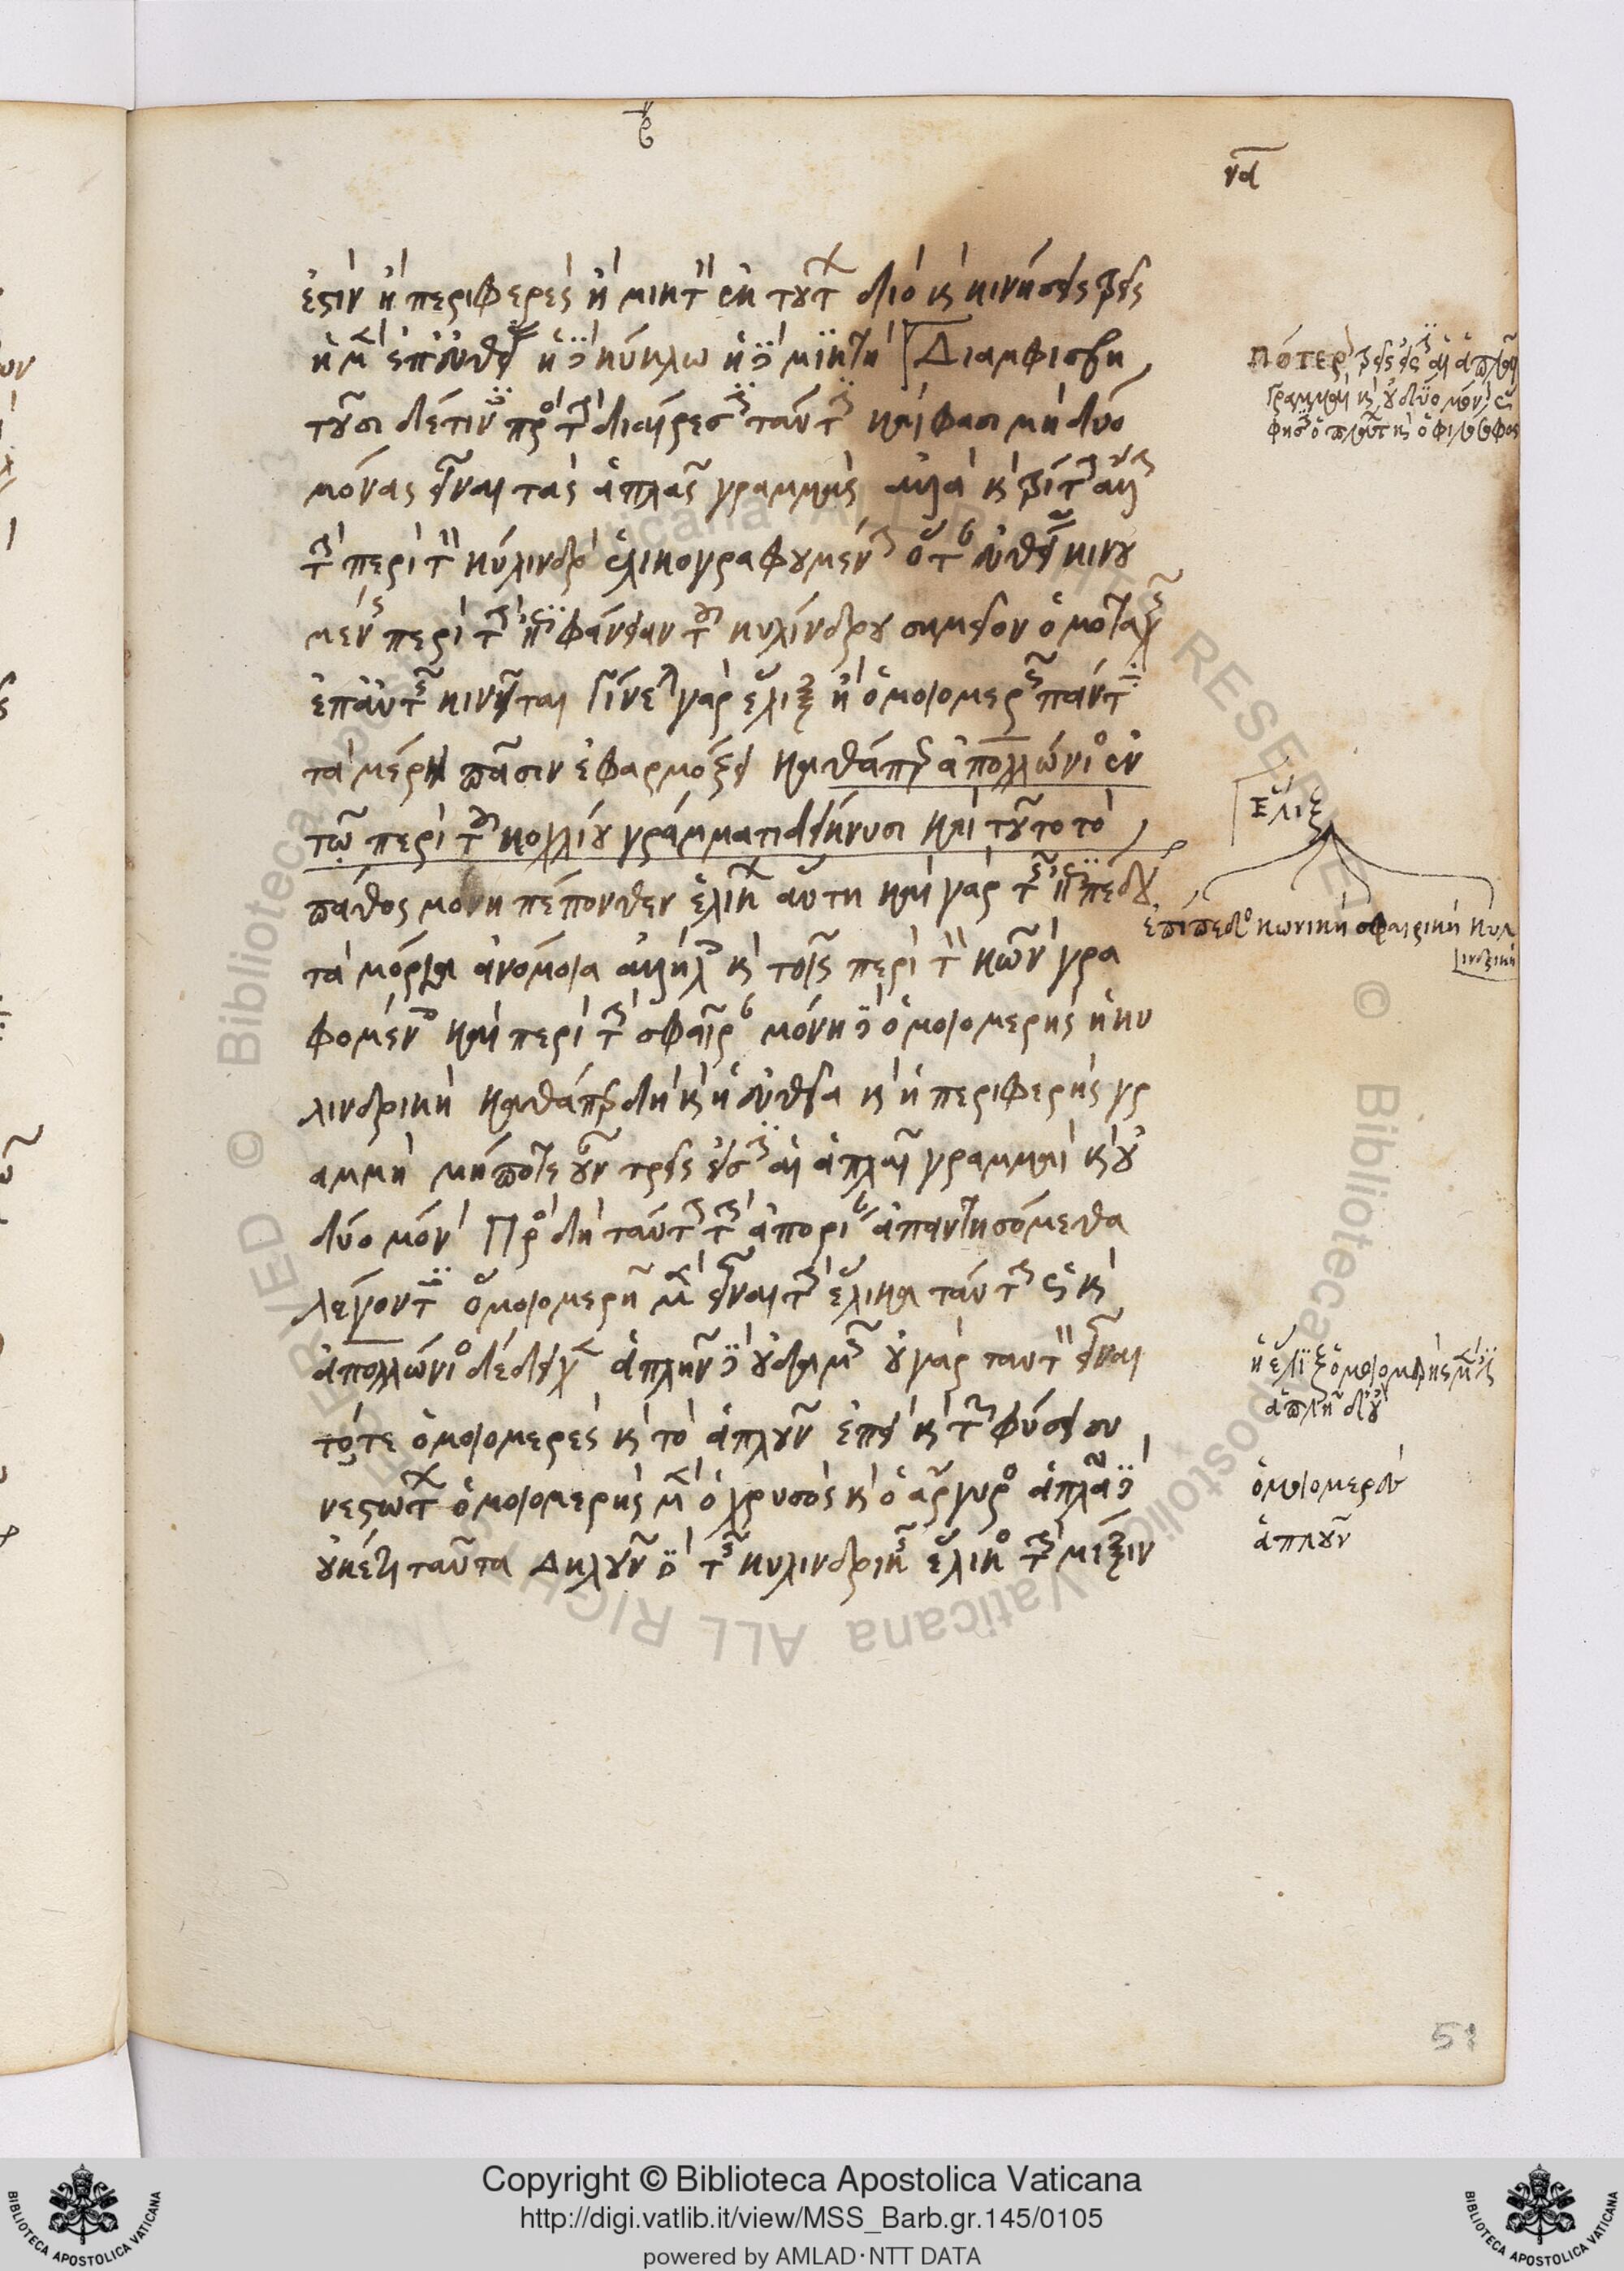 να
ἐστὶν ἢ περιφερὲς ἢ μικτὸν ἐκ τούτων διὸ καὶ κινήσεις τρεῖς
ἡ μὲν ἐπ' εὐθείας ἡ δὲ κύκλω ἡ δὲ μικτὴ Διαμφισβη
τοῦσι δέ τινες πρὸς τὴν διαίρεσιν ταύτην καί φασι μὴ δύο
μόνας εἶναι τὰς ἁπλᾶς γραμμὰς ἀλλὰ καὶ τρίτην
τὴν περὶ τὸν κύλινδρον ἑλικογραφουμένην ὅταν εὐθείας κινου
μένης περὶ τὴν ἐπιφάνειαν τοῦ κυλίνδρου σημεῖον ὁμοταχῶς
ἐπ' αὐτῆς κινῆται Γίνεται γὰρ ἕλιξ ἡ ὁμοιομερῶς πάντα
τὰ μέρη πᾶσιν ἐφαρμόξει καθάπερ ἀπολλώνιος ἐν
τῷ περὶ τοῦ κοχλίου γράμματι δείκνυσι καὶ τοῦτο τὸ
πάθος μόνη πέπονθεν ἑλίκων αὕτη καὶ γὰρ τῆς ἐπιπέδου
τὰ μόρια ἀνόμοια ἀλλήλοις καὶ τῆς περὶ τὸν κῶνον γρα
φομένης καὶ περὶ τὴν σφαῖραν μόνη δὲ ὁμοιομερὴς ἡ κυ
λινδρικὴ καθάπερ δὴ καὶ ἡ εὐθεῖα καὶ ἡ περιφερὴς γρ
αμμὴ μήποτε οὖν τρεῖς εἰσιν αἱ ἁπλαῖ γραμμαὶ καὶ οὐ
δύο μόνον Πρὸς δὴ ταύτην τὴν ἀπορίαν ἀπαντησόμεθα
λέγοντες ὁμοιομερῆ μὲν εἶναι τὴν ἕλικα ταύτην ὡς καὶ
ἀπολλώνιος δέδειχεν ἁπλῆν δὲ οὐδαμῶς οὐ γὰρ ταυτὸν εἶναι
τό τε ὁμοιομερὲς καὶ τὸ ἁπλοῦν ἐπεὶ καὶ τῶν φύσει συ
νεστώτων ὁμοιομερὴς μὲν ὁ χρυσὸς καὶ ὁ ἄργυρος ἁπλᾶ δὲ
οὐκέτι ταῦτα Δηλοῦν δὲ τῆς κυλινδρικῆς ἕλικος τὴν μίξιν
πότερον τρεῖς εἰσιν αἱ ἁπλαῖ
γραμμαὶ καὶ οὐ δύο μόναι ὥς
φησιν ὁ πλάτων καὶ ὁ φιλόσοφος
ἕλιξ
ἐπίπεδος κωνικὴ σφαιρικὴ κυλ
ινδρικὴ
ἡ ἕλιξ ὁμοιομερὴς μέν ἐστιν
ἁπλῆ δ' οὔ
ὁμοιομερὲς
ἁπλοῦν
51
Copyright © Biblioteca Apostolica Vaticana
http://digi.vatlib.it/view/MSS_Barb.gr.145/0105
powered by AMLAD·NTT DATA